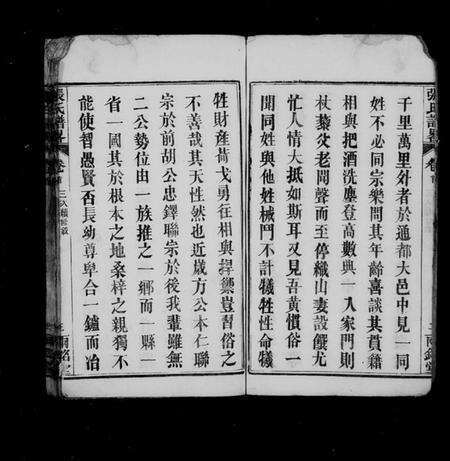 張氏譜
卷首
千里萬里外者於通都大邑中見一同
姓不必同宗樂問其年齡喜談其貫籍
相與把酒洗塵登高數典一入家門則
杖藜父老聞聲而至停織山妻設饌尤
忙人情大抵如斯耳又見吾黃慣俗一
聞同姓與他姓械鬥不計犧牲性命犧
牲財產荷戈勇往相與捍禦豈習俗之
不善哉其天性然也近歲方公本仁聯
宗於前胡公忠鐸聯宗於後我輩雖無
二公勢位由一族推之一鄉而一縣一
省一國其於根本之地桑梓之親獨不
能使智愚賢否長幼尊卑合一鑪而冶
張氏譜
卷首